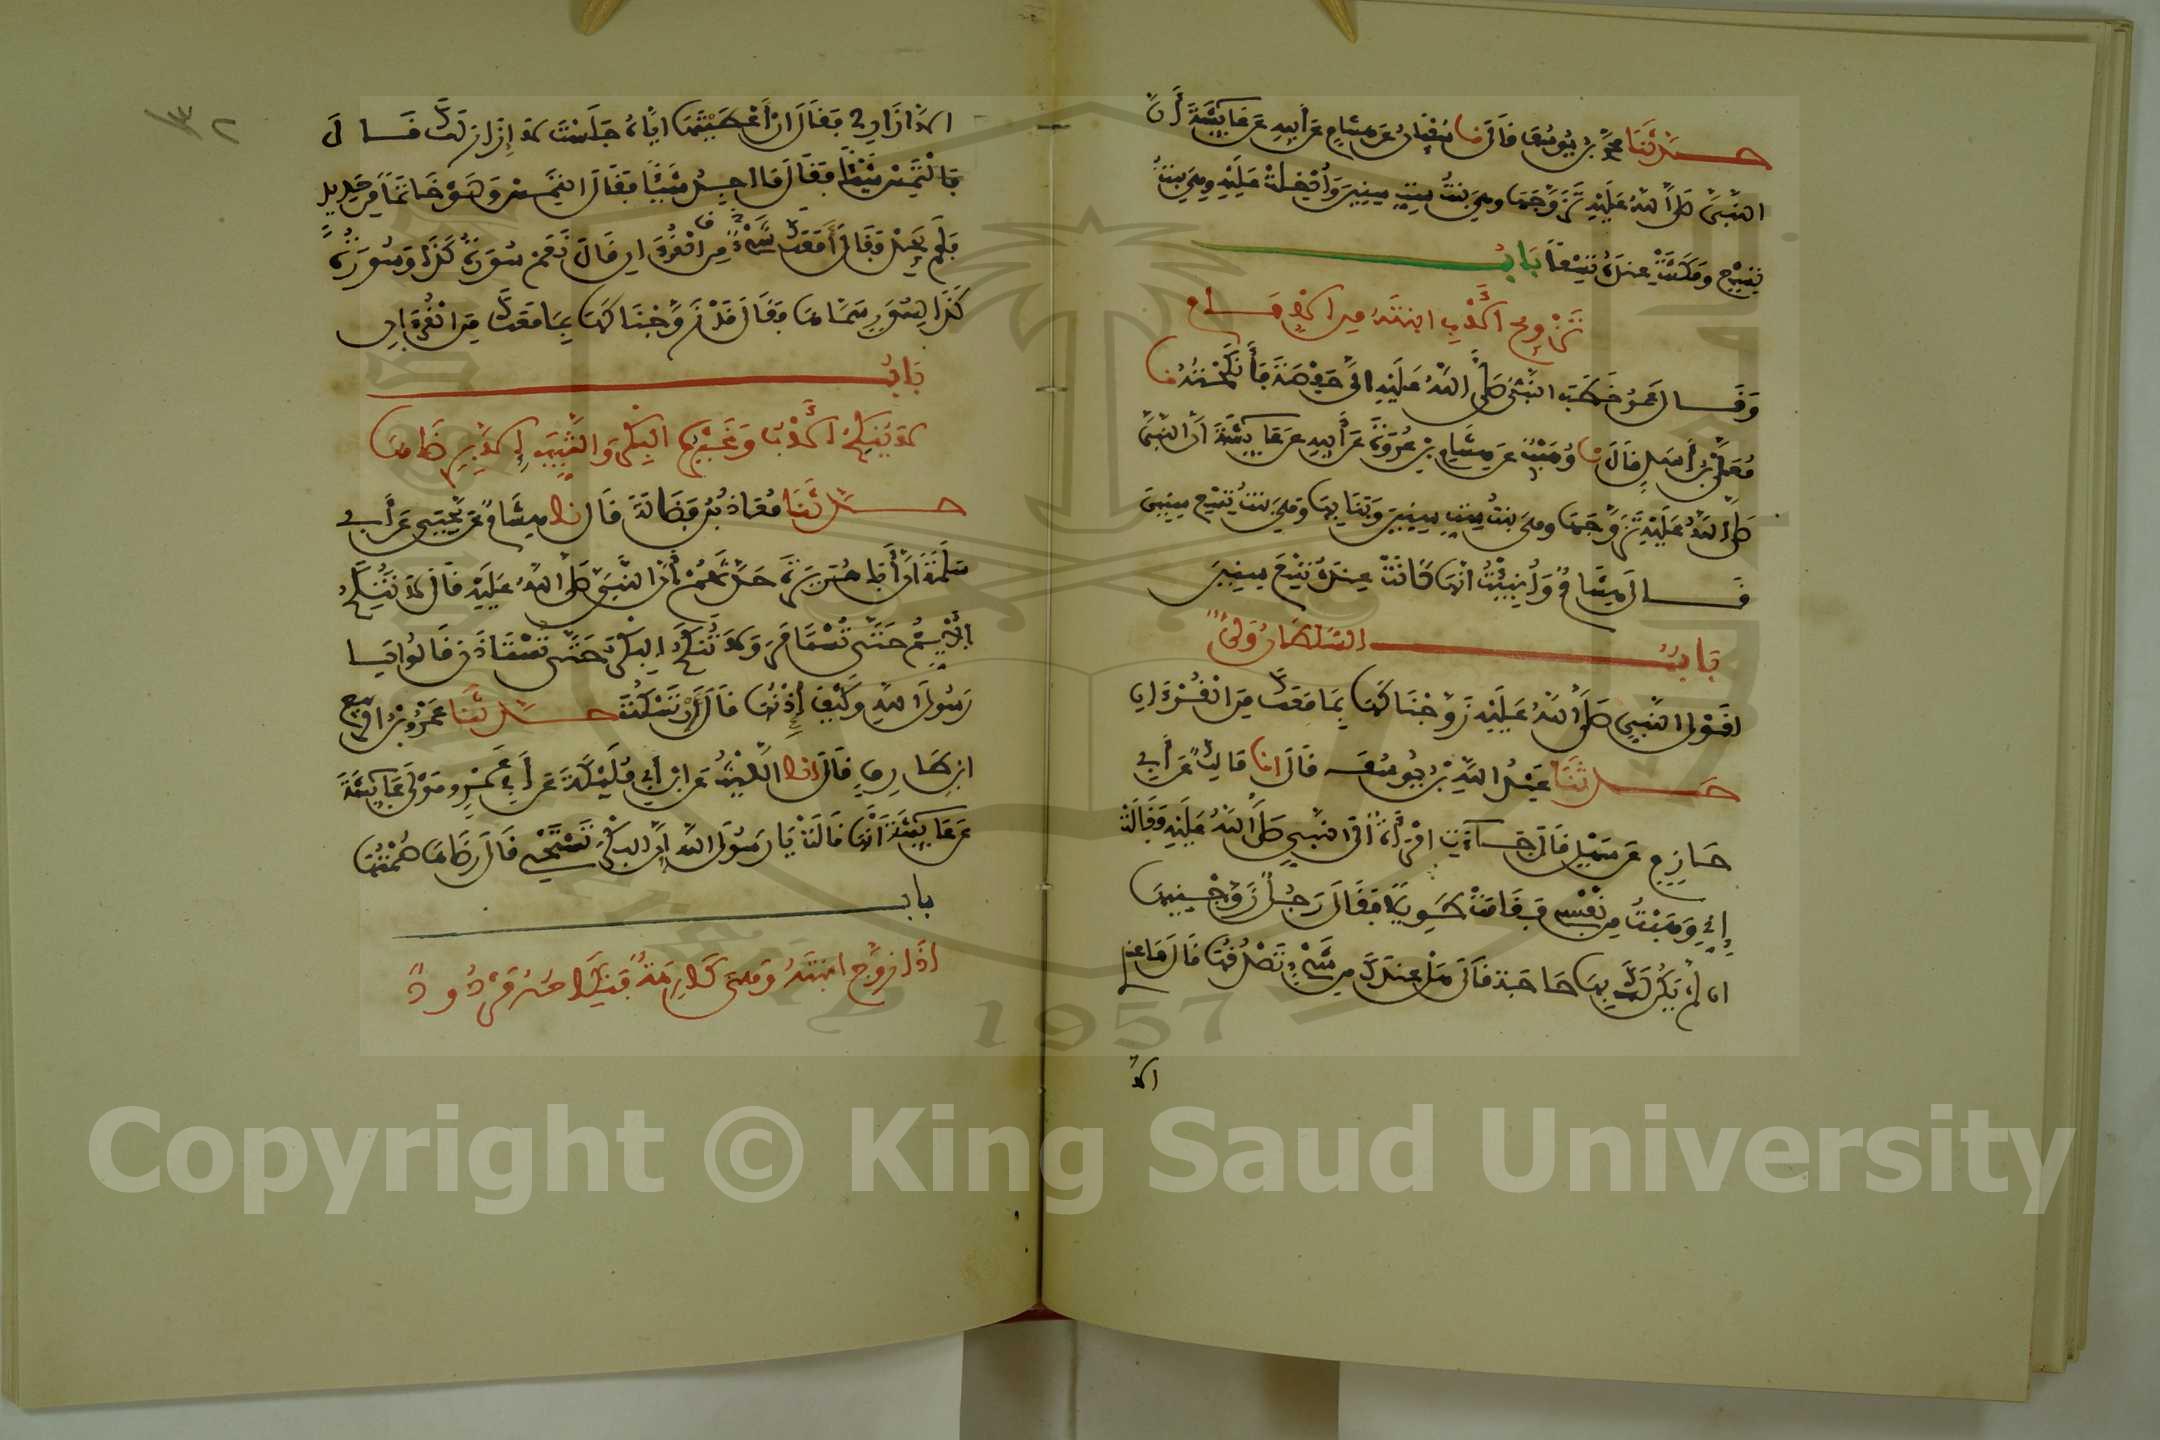 حدثنا محمد بن يوسف قال نا سفيان عن هشام عن أبيه عن عايشة أن
النبي صلى الله عليه تزوجها وهي بنت ست سنين وأدخلت عليه وهي بنت
تسع ومكثت عنده تسعا باب
تزويج الأب ابنته من الإمام
وقال عمر خطب النبي صلى الله عليه إلي حفصة فأنكحته نا
معلى بن أسد قال نا وهيب عن هشام بن عروة عن أبيه عن عايشة أن النبي
صلى الله عليه تزوجها وهي بنت ست سنين وبنا بها وهي بنت تسع سنين
قال هشام وأنبيت أنها كانت عنده تسع سنين
باب السلطان ولي
لقول النبي صلى الله عليه زوجناكها بما معك من القرءان
حدثنا عبد الله بن يوسف قال انا مالك عن أبي
حازم عن سهل قال جاءت امرأة الى النبي صلى الله عليه فقالت
إني وهبت من نفسي فقامت طويلا فقال رجل زوجنيها
ان لم يكن لك بها حاجة قال هل عندك من شيء تصدقها قال ما عندي
الا
١٣٢
الا ازاري فقال ان أعطيتها اياه جلست لا إزار لك قال
فالتمس شيئا فقال ما اجد شيئا فقال التمس ولو خاتما من حديد
فلم يجد فقال أمعك شيء من القرءان قال نعم سورة كذا وسورة
كذا لسور سماها فقال قد زوجناكها بما معك من القرءان
باب
لا ينكح الأب وغيره البكر والثيب إلا برضاها
حدثنا معاذ بن فضالة قال نا هشام عن يحيى عن أبي
سلمة أن أبا هريرة حدثهم أن النبي صلى الله عليه قال لا تنكح
الأيم حتى تستامر ولا تنكح البكر حتى تستاذن قالوا يا
رسول الله وكيف إذنها قال أن تسكت حدثنا عمرو بن الربيع
ابن طارق قال انا الليث عن ابن أبي مليكة عن أبي عمرو مولى عايشة
عن عايشة أنها قالت يا رسول الله إن البكر تستحي قال رضاها صمتها
باب
اذا زوج ابنته وهي كارهة فنكاحه مردود
Copyright © King Saud University
1957